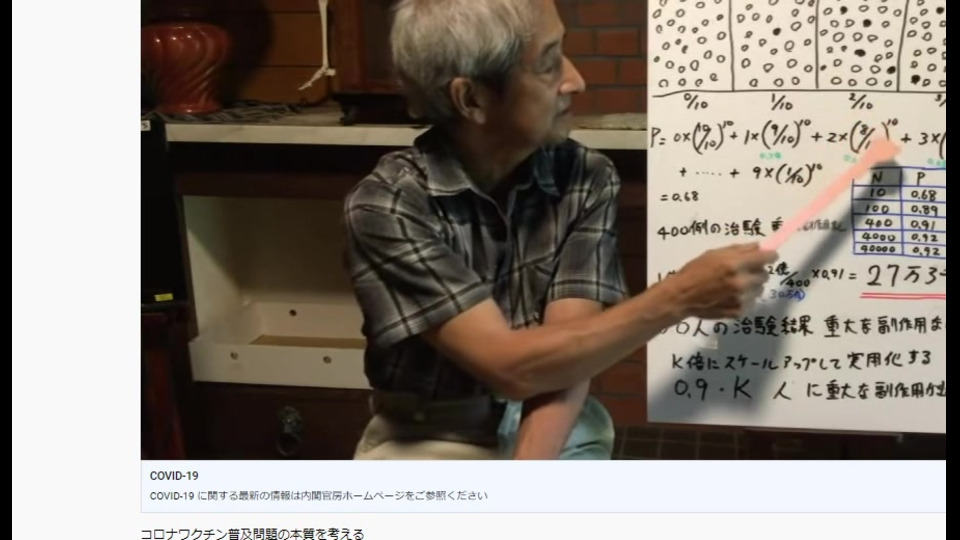 0/10 1/10 2/10 3/
P = 0×(10/10)^10 + 1×(9/10)^10 + 2×(8/1 )^10 + 3×(
+ ..... + 9×(1/10)^10
= 0.68
N P
10 0.68
100 0.89
400 0.91
4000 0.92
40000 0.92
400例の治験 重
2億/400 ×0.91 = 27万3
人の治験結果 重大な副作用な
K倍にスケールアップして実用化する
0.9・K 人 に重大な副作用が
COVID-19
COVID-19 に関する最新の情報は内閣官房ホームページをご参照ください
コロナワクチン普及問題の本質を考える